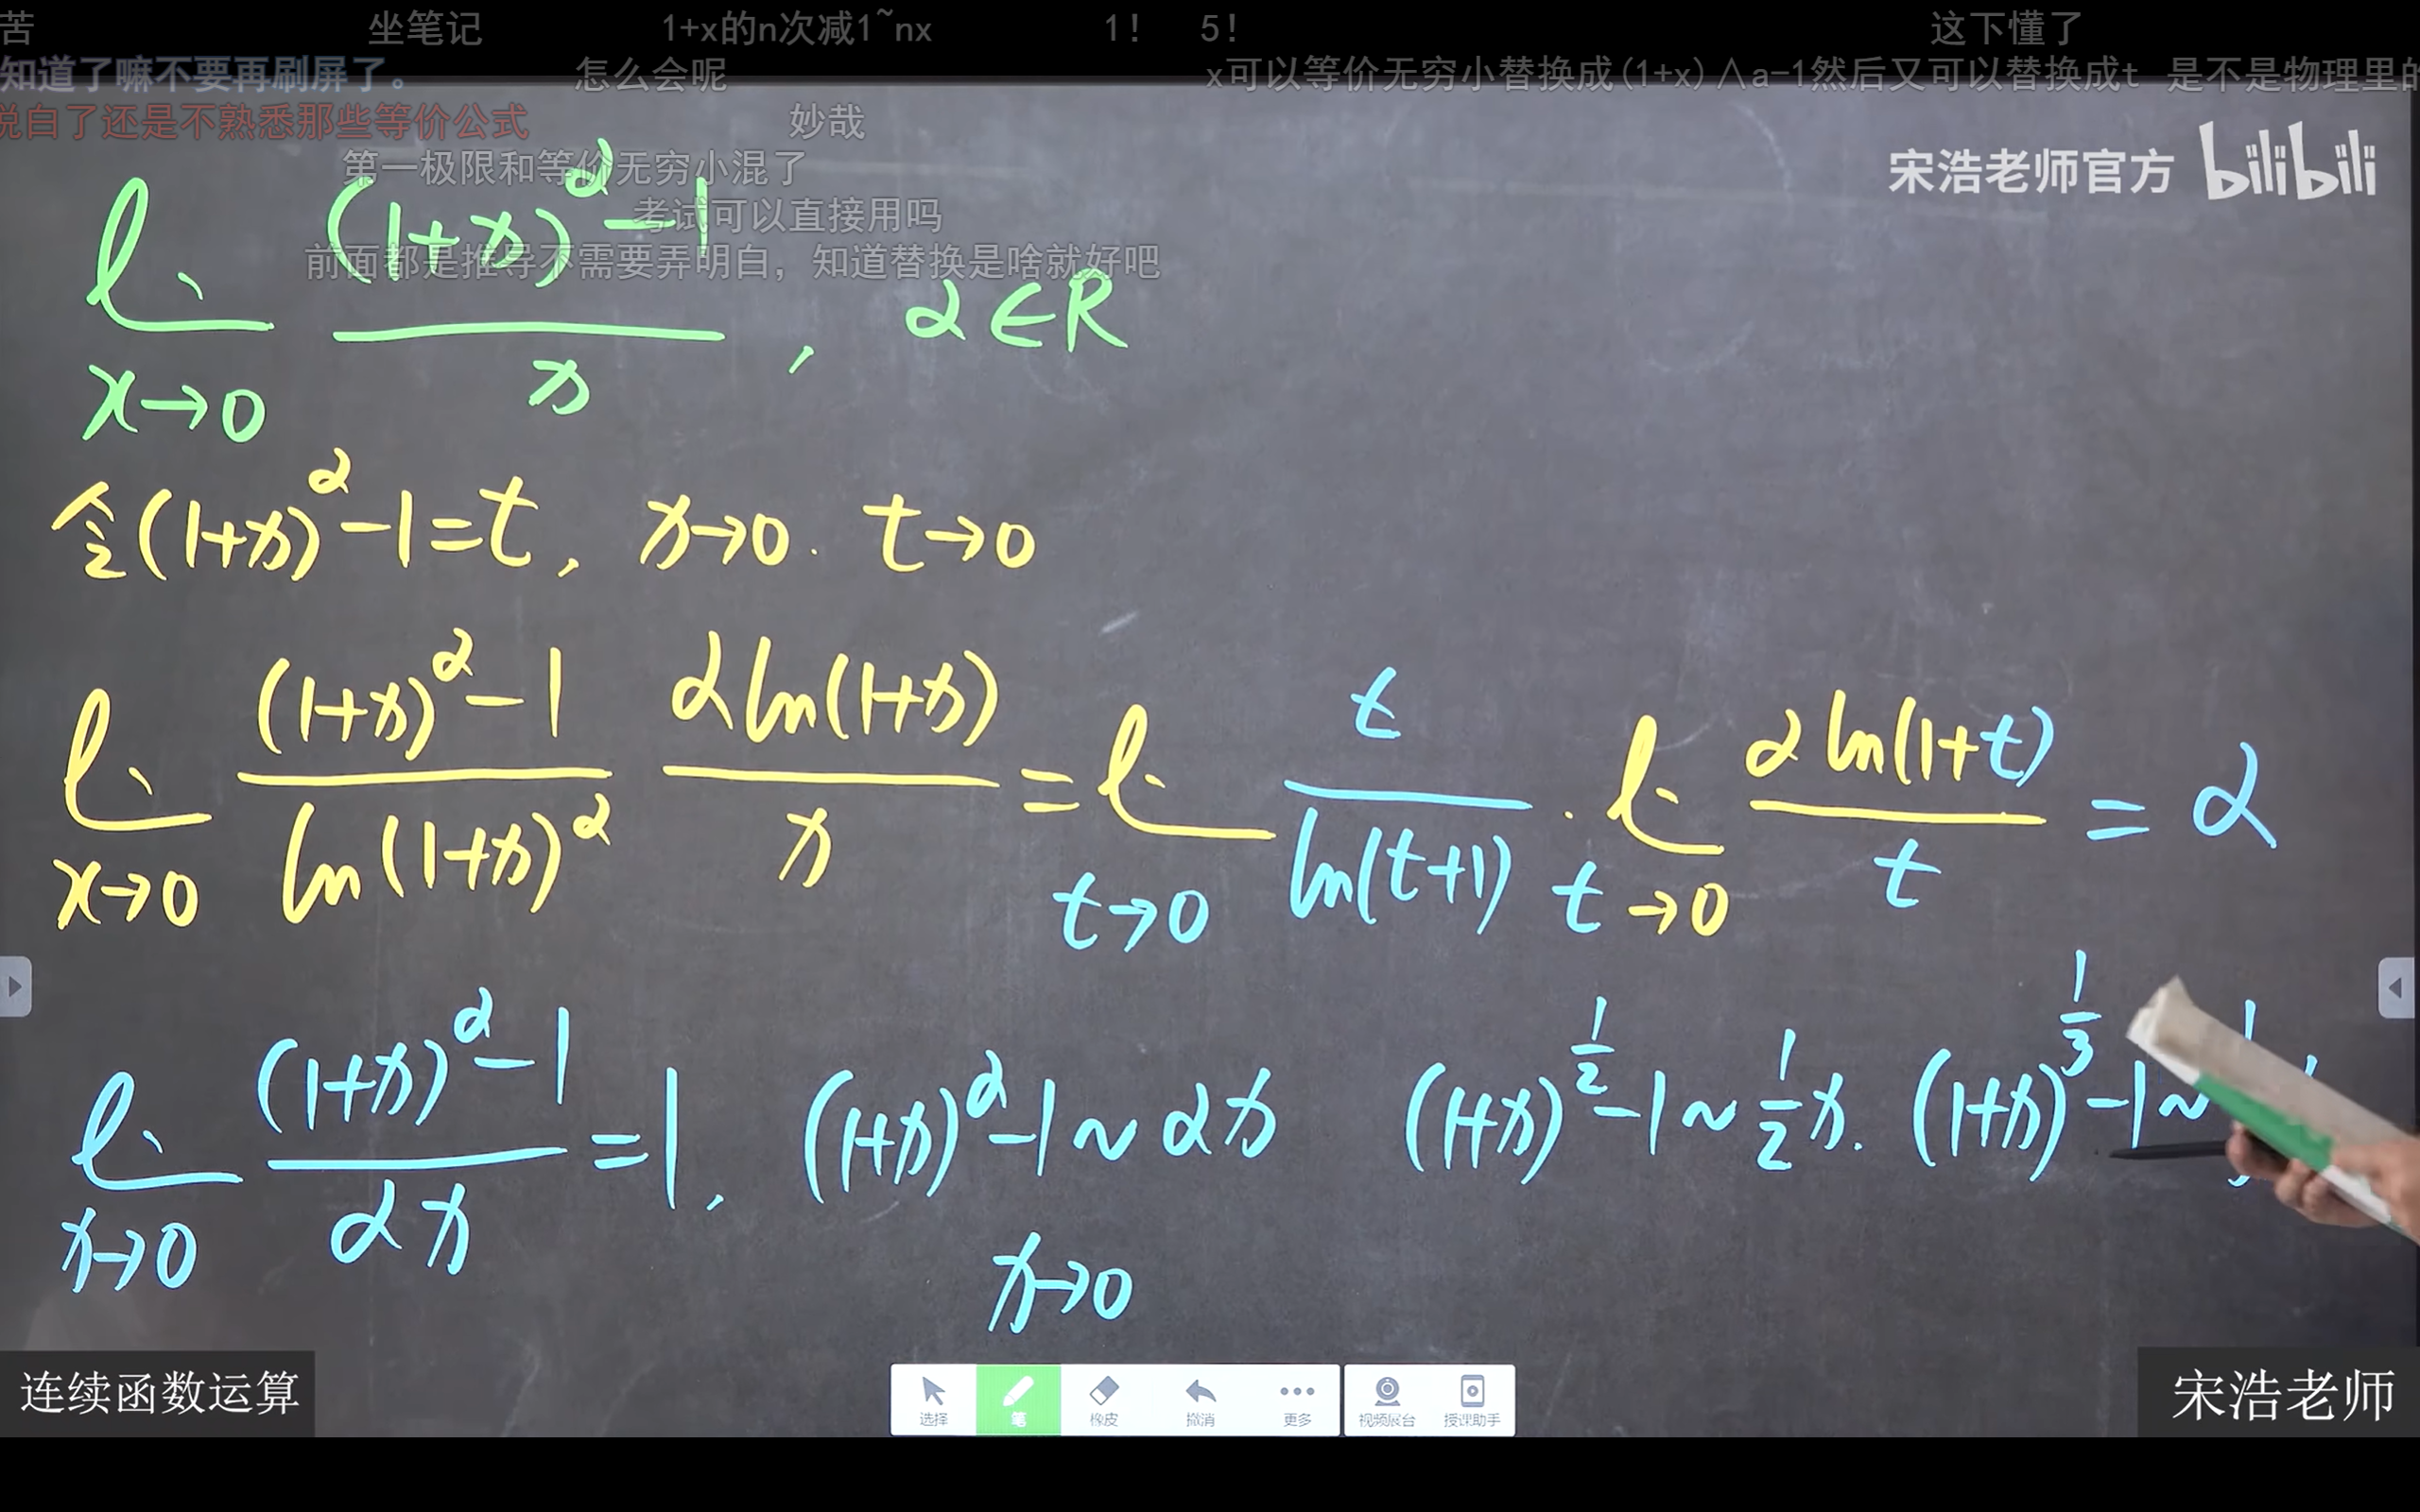 苦 坐笔记 1+x的n次减1~nx 1! 5! 这下懂了
知道了嘛不要再刷屏了。 怎么会呢 x可以等价无穷小替换成(1+x)∧a-1然后又可以替换成t 是不是物理里的
说白了还是不熟悉那些等价公式 妙哉
第一极限和等价无穷小混了
宋浩老师官方 bilibili
考试可以直接用吗
前面都是推导不需要弄明白，知道替换是啥就好吧
lim x→0 ((1+x)^α-1)/x , α∈R
令(1+x)^α-1=t, x→0. t→0
lim x→0 ((1+x)^α-1)/(ln(1+x)^α) (αln(1+x))/x = lim t→0 t/(ln(t+1)) · lim t→0 (αln(1+t))/t = α
lim x→0 ((1+x)^α-1)/(αx) =1, (1+x)^α-1~αx x→0 (1+x)^(1/2)-1~1/2 x. (1+x)^(1/3)-1~
连续函数运算
选择 笔 橡皮 撤消 更多 视频展台 授课助手
宋浩老师